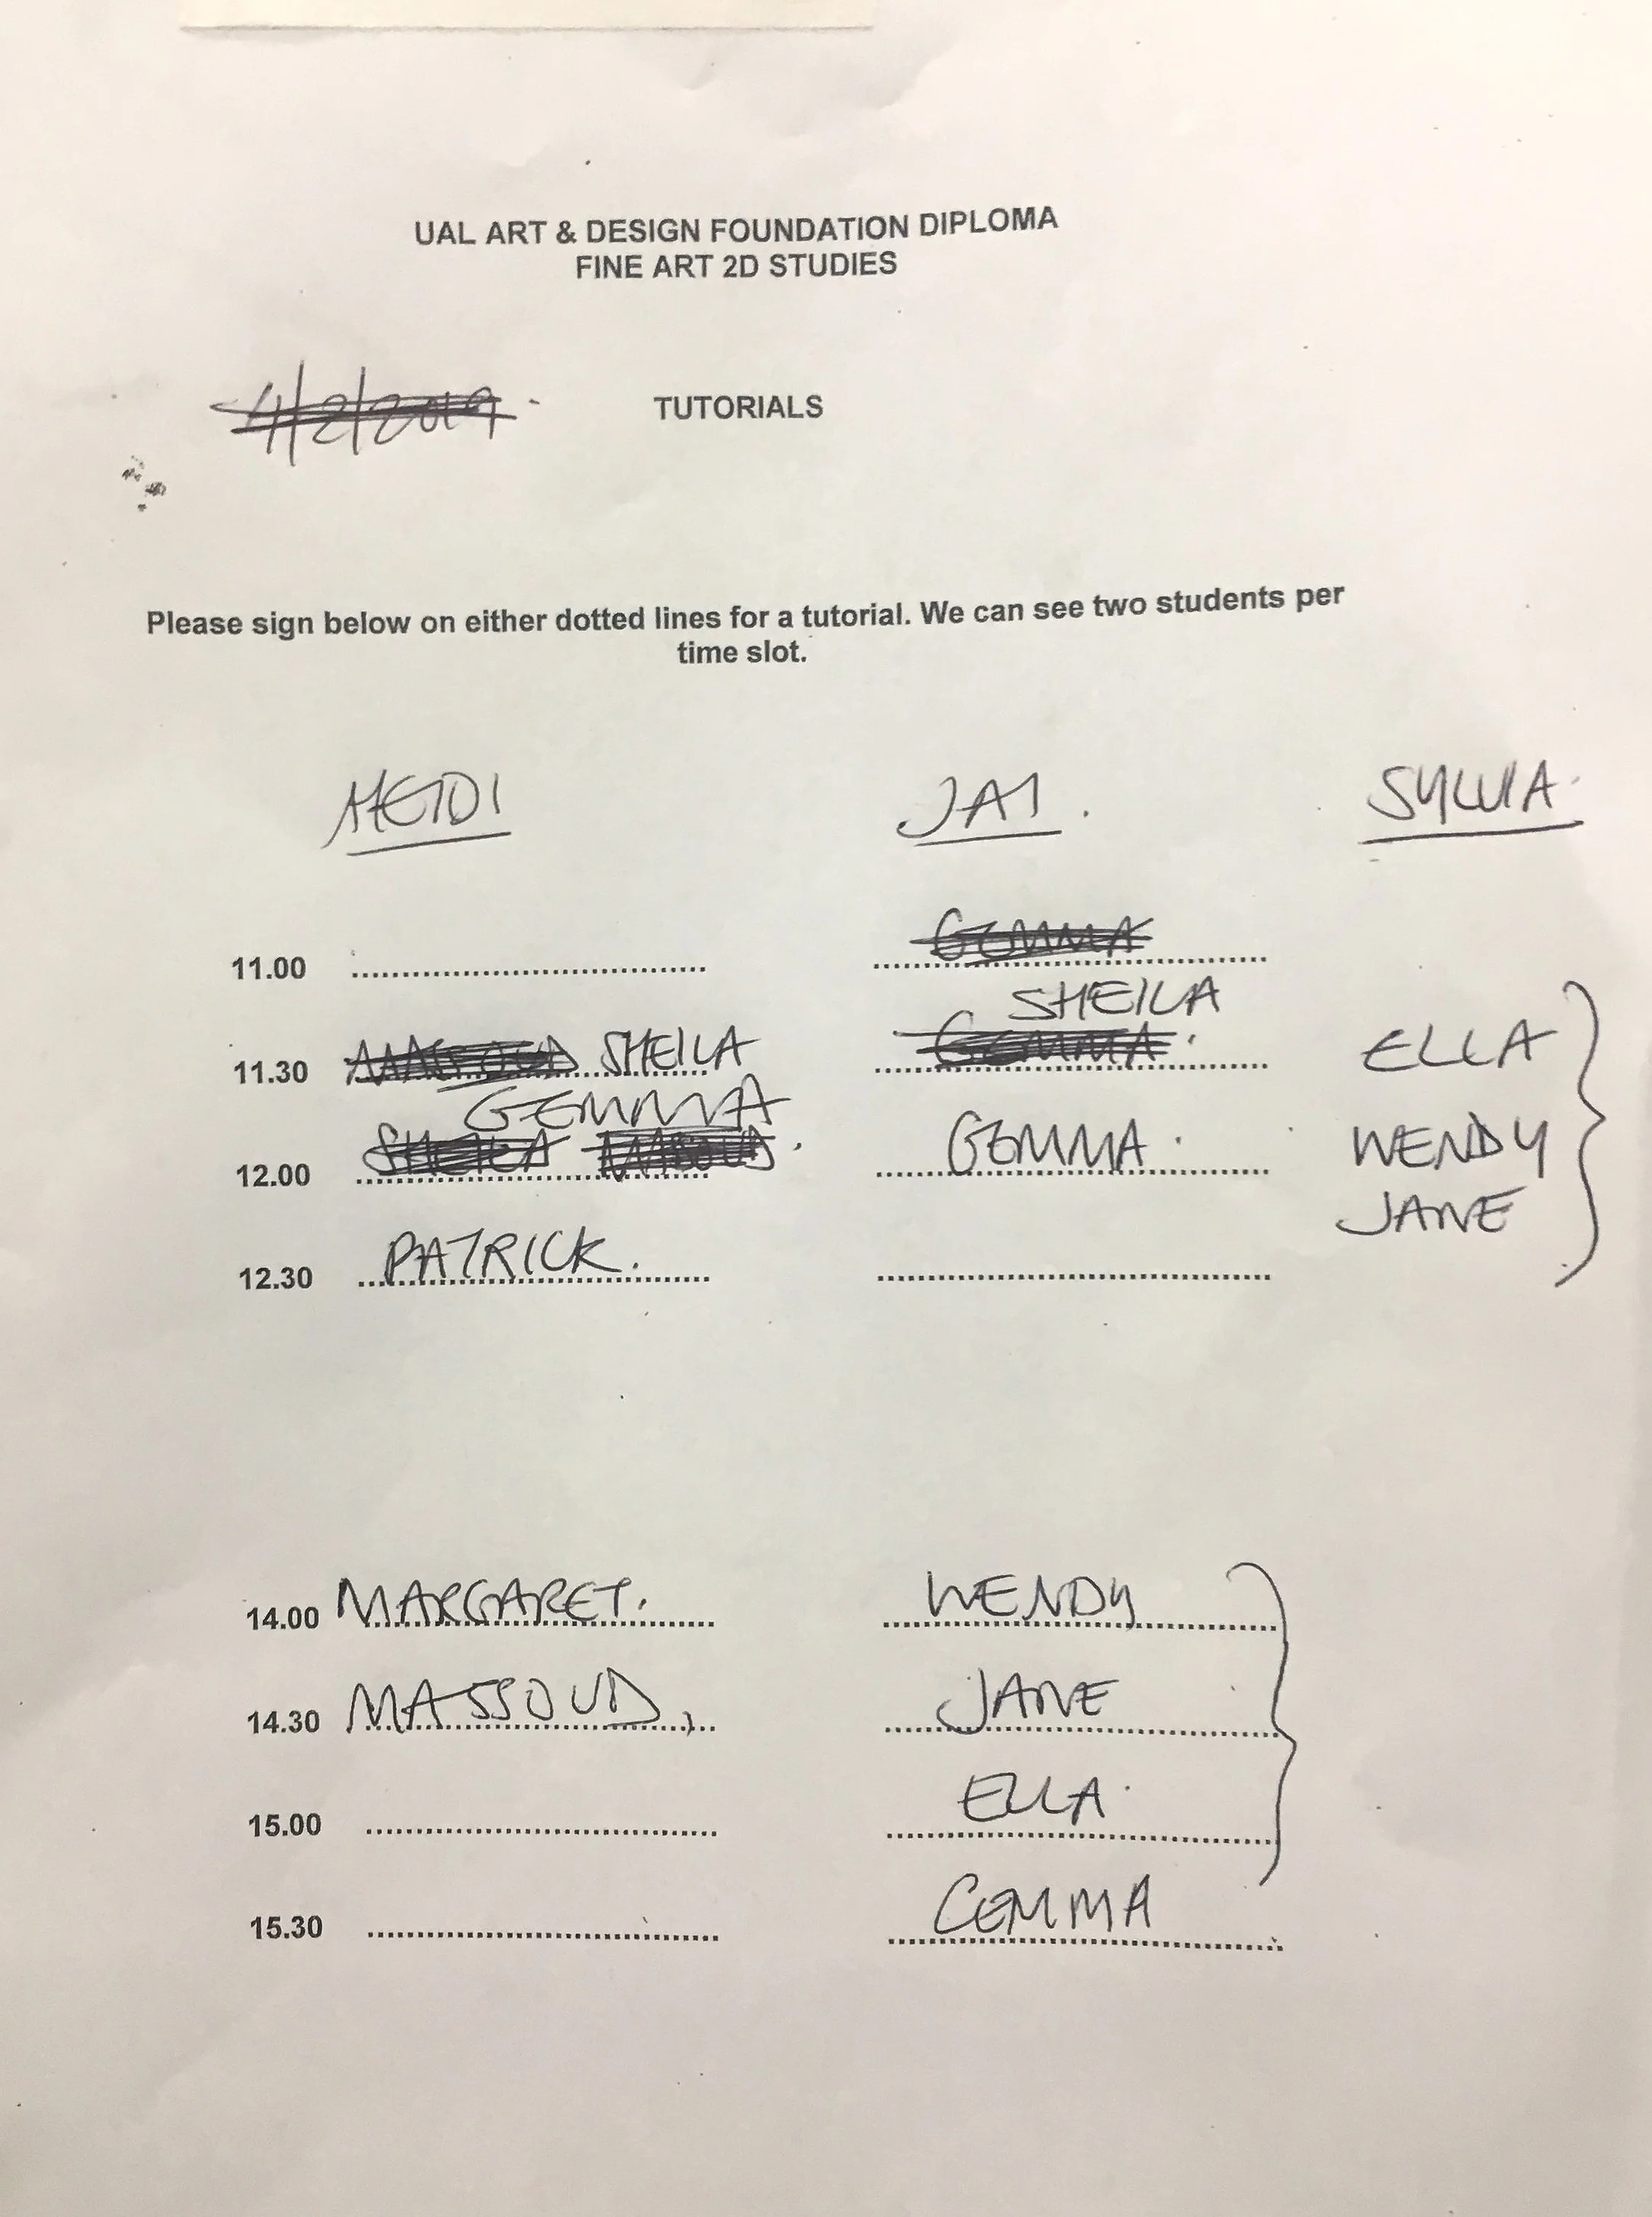 UAL ART & DESIGN FOUNDATION DIPLOMA
FINE ART 2D STUDIES
4/2/2019. TUTORIALS
Please sign below on either dotted lines for a tutorial. We can see two students per
time slot.
HEIDI JAI. SYLVIA.
11.00 GEMMA
SHEILA
11.30 MASSOUD SHEILA GEMMA. ELLA
GEMMA
12.00 SHEILA MASOUD. GEMMA. WENDY
JANE
12.30 PATRICK.
14.00 MARGARET. WENDY
14.30 MASSOUD, JANE
15.00 ELLA.
15.30 GEMMA